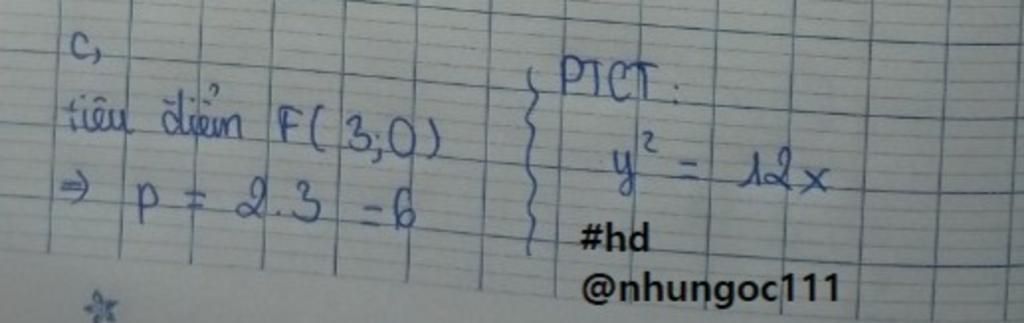 c,
tiêu điểm F(3;0)
⇒ p = 2.3 = 6
PTCT:
y² = 12x
#hd
@nhungoc111